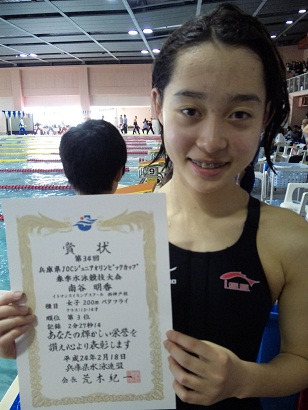 賞状
第34回
兵庫県JOCジュニアオリンピックカップ
春季水泳競技大会
南谷 明香
イトマンスイミングスクール 西神戸校
種目 女子 200m バタフライ
クラス:13-14才
順位 第3位
記録 2分27秒14
あなたの輝かしい栄誉を
讃え心より表彰します
平成24年2月18日
兵庫県水泳連盟
会長 荒木紀一